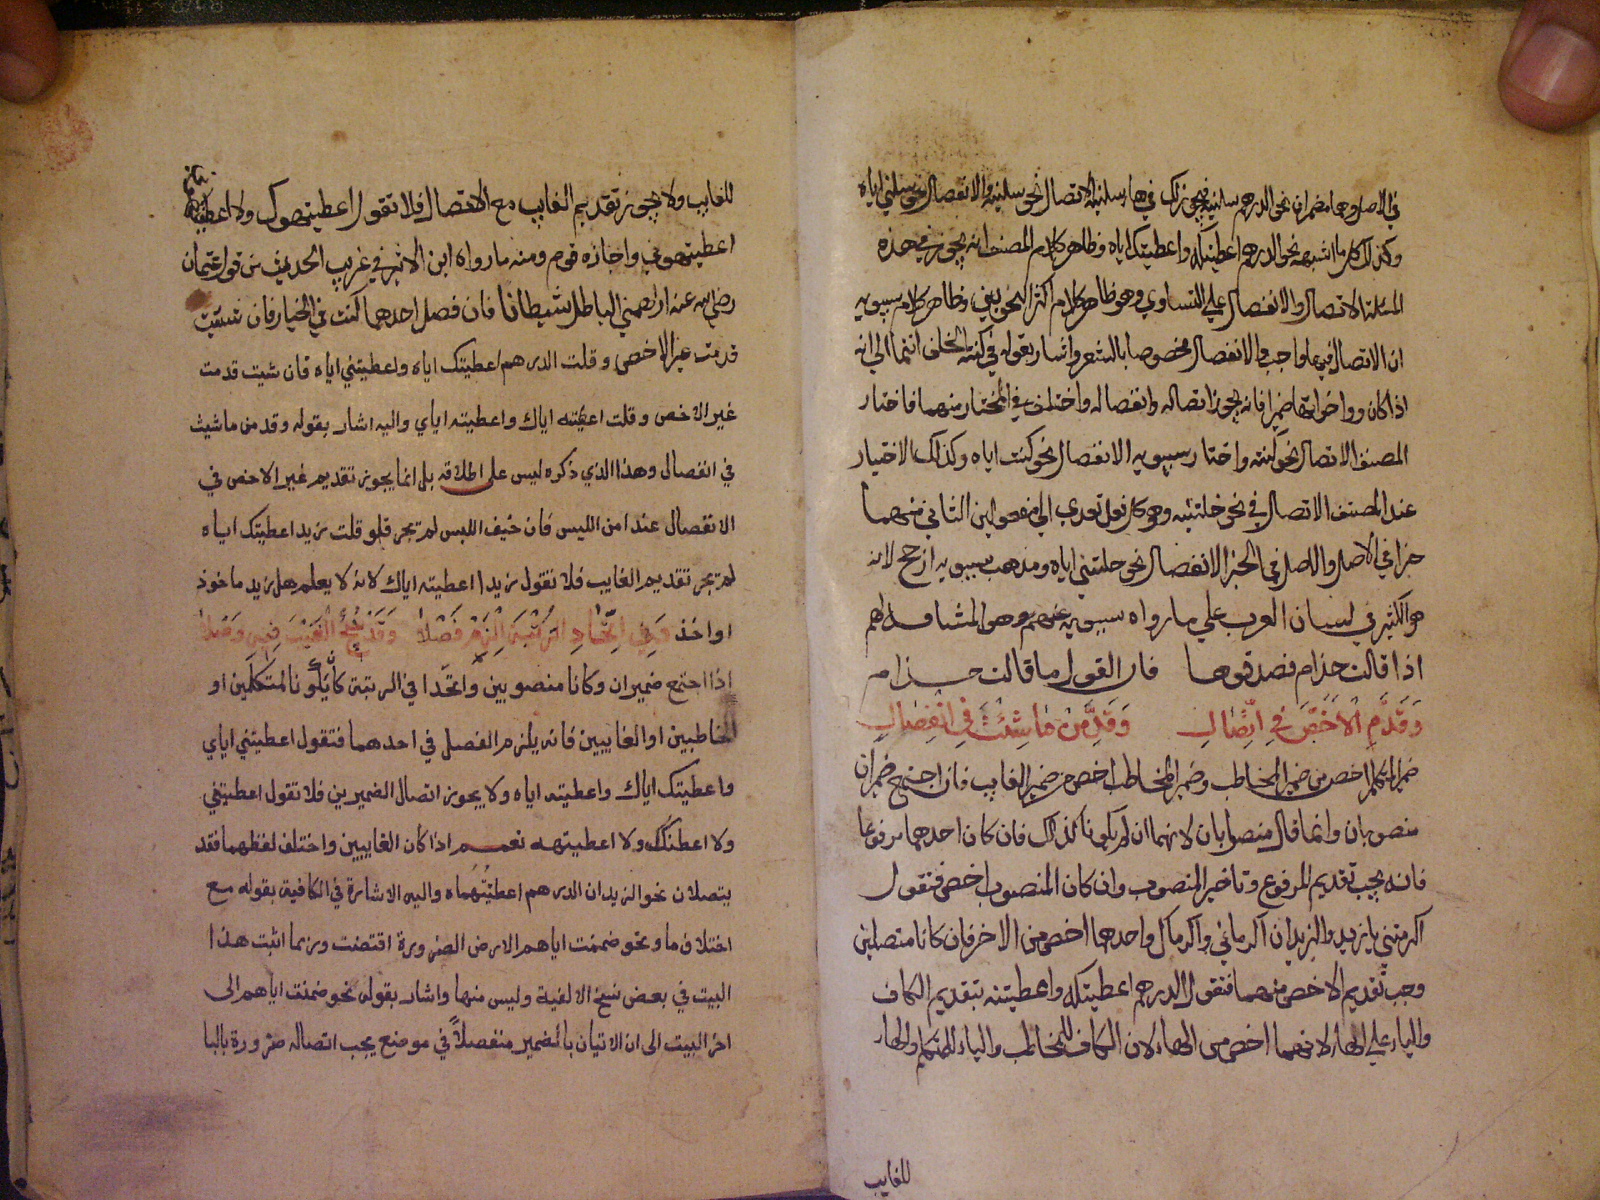 في الاصل وهما ضميران نحو الدرهم سلنيه فيجوز لك في هاء سلنيه الاتصال نحو سلنيه والانفصال نحو سلني اياه
وكذلك كل ما اشبهه نحو الدرهم اعطيتكه واعطيتك اياه وظاهر كلام المصنف انه يجوز في هذه
المسئلة الاتصال والانفصال علي التساوي وهو ظاهر كلام اكثر النحويين وظاهر كلام سيبويه
ان الاتصال فيها واجب والانفصال مخصوصا بالشعر واشار بقوله في كنته الخلف انتما الي انه
اذا كان وواخواتها ضميرا فانه يجوز اتصاله وانفصاله واختلف في المختار منهما فاختار
المصنف الاتصال نحو كنته واختار سيبويه الانفصال نحو كنت اياه وكذلك الاختيار
عند المصنف الاتصال في نحو خلتنيه وهو كل فعل تعدي الي مفعولين الثاني منهما
خبر في الاصل والاصل في الخبر الانفصال نحو خلتني اياه ومذهب سيبويه ارجح لانه
هو الكثير في لسان العرب علي ما رواه سيبويه عنهم وهو المشافه لهم
اذا قالت حذام فصدقوها فان القول ما قالت حذام
وَقَدِّمِ الْاَخَصَّ فِي اتِّصَالِ وَقَدِّمَنْ مَا شِئْتَ فِي انْفِصَالِ
ضمير المتكلم اخص من ضمير المخاطب وضمير المخاطب اخص من ضمير الغايب فان اجتمع ضميران
منصوبان وانما قال منصوبان لانهما ان لم يكونا كذلك فان كان احدهما مرفوعا
فانه يجب تقديم المرفوع وتاخير المنصوب وان كان المنصوب اخص فتقول
اكرمتني يا زيد والزيدان اكرماني واكرماك واحدهما اخص من الاخر فان كانا متصلين
وجب تقديم الاخص منهما فتقول الدرهم اعطيتكه واعطيتنيه بتقديم الكاف
والياء علي الهاء لانهما اخص من الهاء لان الكاف للمخاطب والياء للمتكلم والهاء
للغايب
للغايب ولا يجوز تقديم الغايب مع الاتصال فلا تقول اعطيتهوك ولا
اعطيتهوني واجازه قوم ومنه ما رواه ابن الاثير في غريب الحديث من قول عثمان
رضي الله عنه اراهمني الباطل شيطانا فان فصل احدهما كنت في الخيار فان شئت
قدمت الاخص وقلت الدرهم اعطيتك اياه واعطيتني اياه فان شيت قدمت
غير الاخص وقلت اعطيته اياك واعطيته اياي واليه اشار بقوله وقدمن ما شيت
في انفصال وهذا الذي ذكره ليس علي اطلاقه بل انما يجوز تقديم غير الاخص في
الانفصال عند امن اللبس فان خيف اللبس لم تجز فلو قلت زيد اعطيتك اياه
لم تجز تقديم الغايب فلا تقول زيد اعطيته اياك لانه لا يعلم هل زيد ماخوذ
او اخذ وَفِي اتِّحَادِ الرُّتْبَةِ الْزَمْ فَصْلاَ وَقَدْ يُبِيحُ الْغَيْبُ فِيهِ وَصْلاَ
اذا اجتمع ضميران وكانا منصوبين واتحدا في الرتبة كأن يكونا لمتكلمين او
لمخاطبين او الغايبين فانه يلزم الفصل في احدهما فتقول اعطيتني اياي
واعطيتك اياك واعطيته اياه ولا يجوز اتصال الضميرين فلا تقول اعطيتنني
ولا اعطيتكك ولا اعطيتهه نعم اذا كان الغايبين واختلف لفظهما فقد
يتصلان نحو الزيدان الدرهم اعطيتهماه واليه الاشارة في الكافية بقوله مع
اختلاف ما ونحو ضمنت اياهم الارض الضرورة اقتضت وربما اثبت هذا
البيت في بعض نسخ الالفية وليس منها واشار بقوله نحو ضمنت اياهم الي
اخر البيت الي ان الاتيان بالضمير منفصلاً في موضع يجب اتصاله ضرورة بالبا